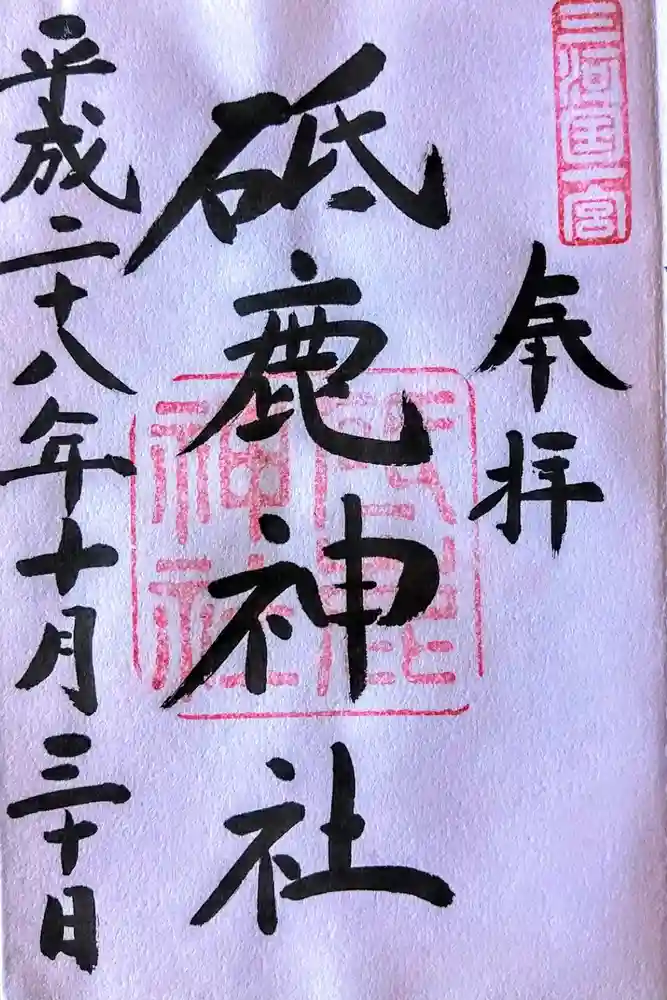 三河国一宮
奉拝
砥鹿神社
砥鹿
神社
平成二十八年十月三十日